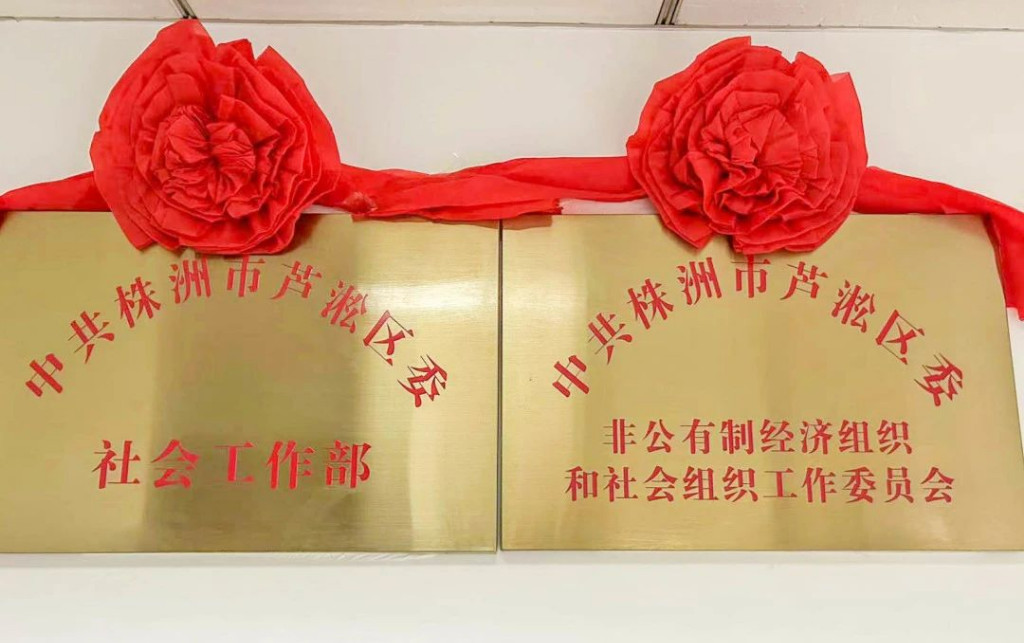 中共株洲市芦淞区委
社会工作部
中共株洲市芦淞区委
非公有制经济组织
和社会组织工作委员会